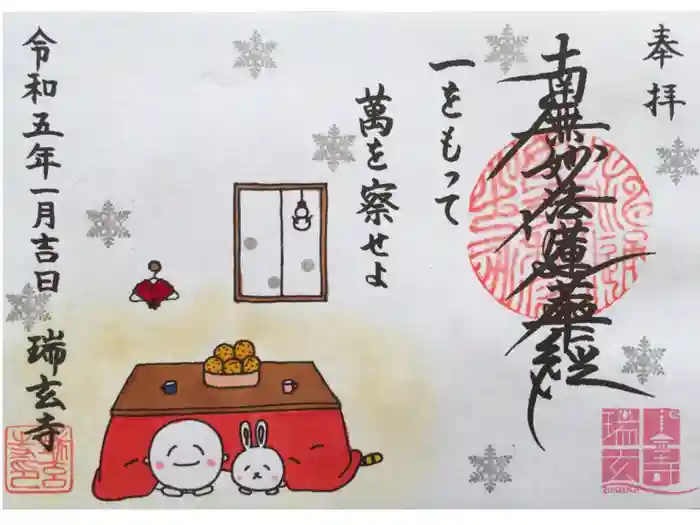 奉拝
南無妙法蓮華経
一をもって
萬を察せよ
令和五年一月吉日
瑞玄寺
瑞玄寺